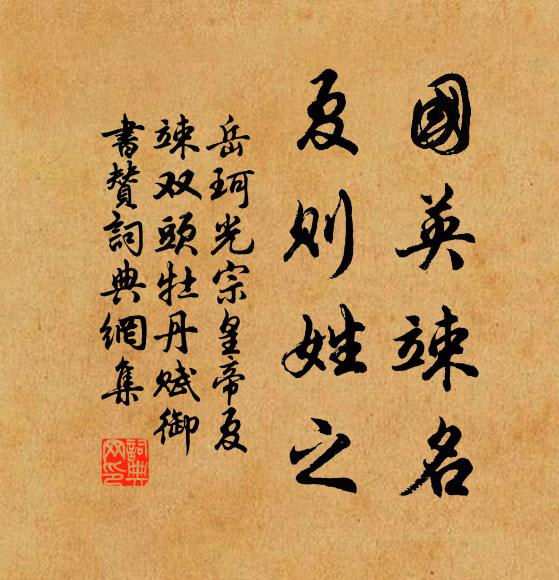 國英竦名
夏則姓之
岳珂光宗皇帝夏
竦双頭牡丹賦御
書贊詞典網集
詞典網印